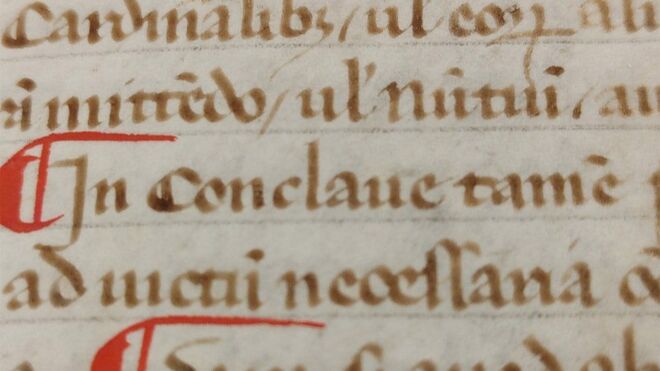 Cardinalibꝫ / ul' eoꝝ ali
mittēdo / ul' Nūtiū / au
¶ In Conclaue tamē
ad uictū necessaria